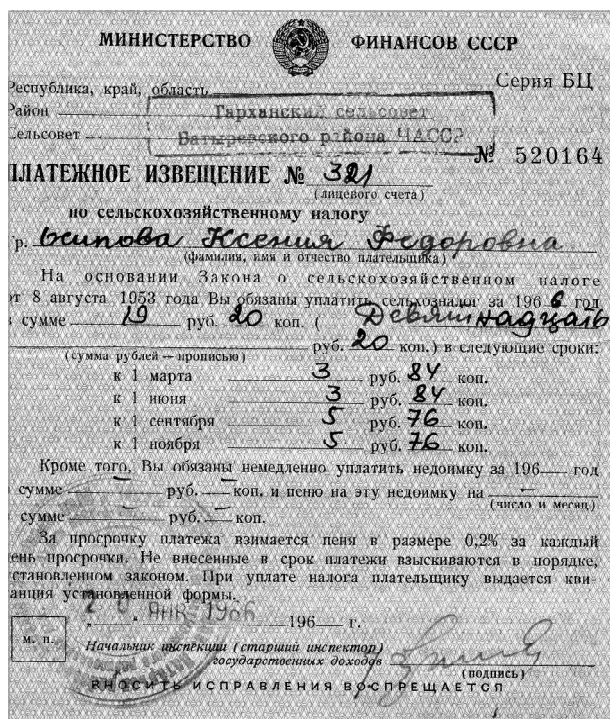 МИНИСТЕРСТВО ФИНАНСОВ СССР
Серия БЦ
Республика, край, область
Район Тарханский сельсовет
сельсовет Батыревского района ЧАССР
№ 520164
ПЛАТЕЖНОЕ ИЗВЕЩЕНИЕ № 321
(лицевого счета)
по сельскохозяйственному налогу
Гр. Осипова Ксения Федоровна
(фамилия, имя и отчество плательщика)
На основании Закона о сельскохозяйственном налоге
от 8 августа 1953 года Вы обязаны уплатить сельхозналог за 1966 год
в сумме 19 руб. 20 коп. (Девятнадцать
руб. 20 коп.) в следующие сроки:
(сумма рублей — прописью)
к 1 марта 3 руб. 84 коп.
к 1 июня 3 руб. 84 коп.
к 1 сентября 5 руб. 76 коп.
к 1 ноября 5 руб. 76 коп.
Кроме того, Вы обязаны немедленно уплатить недоимку за 196— год
в сумме — руб. — коп. и пеню на эту недоимку на —
(число и месяц)
в сумме — руб. — коп.
За просрочку платежа взимается пеня в размере 0,2% за каждый
день просрочки. Не внесенные в срок платежи взыскиваются в порядке,
установленном законом. При уплате налога плательщику выдается кви-
танция установленной формы.
20 ЯНВ 1966
196— г.
м. п.
Начальник инспекции (старший инспектор)
государственных доходов
(подпись)
ВНОСИТЬ ИСПРАВЛЕНИЯ ВОСПРЕЩАЕТСЯ